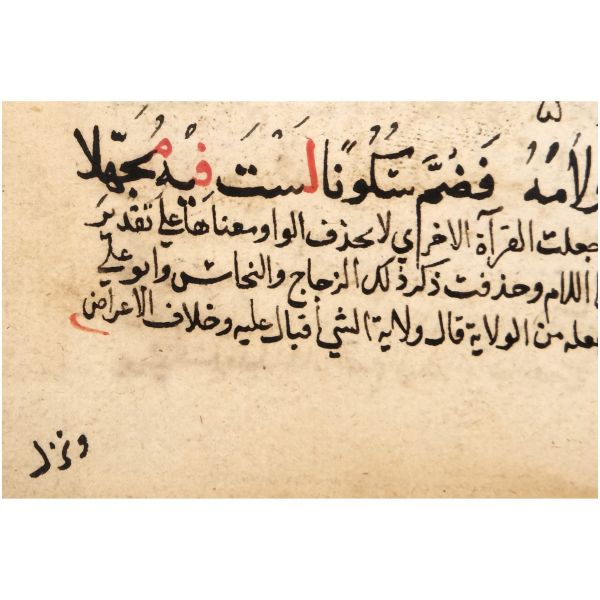 ولامه فَضُمَّ سُكُونًا لَسْتَ فِيْهِ مُجَهَّلا
جعلت القرآة الاخري لا بحذف الواو معناها علي تقدير
اللام وحذفت ذكر ذلك الزجاج والنحاس وابو علي
من الولاية قال ولاية الشي اقبال عليه وخلاف الاعراض
ونزل